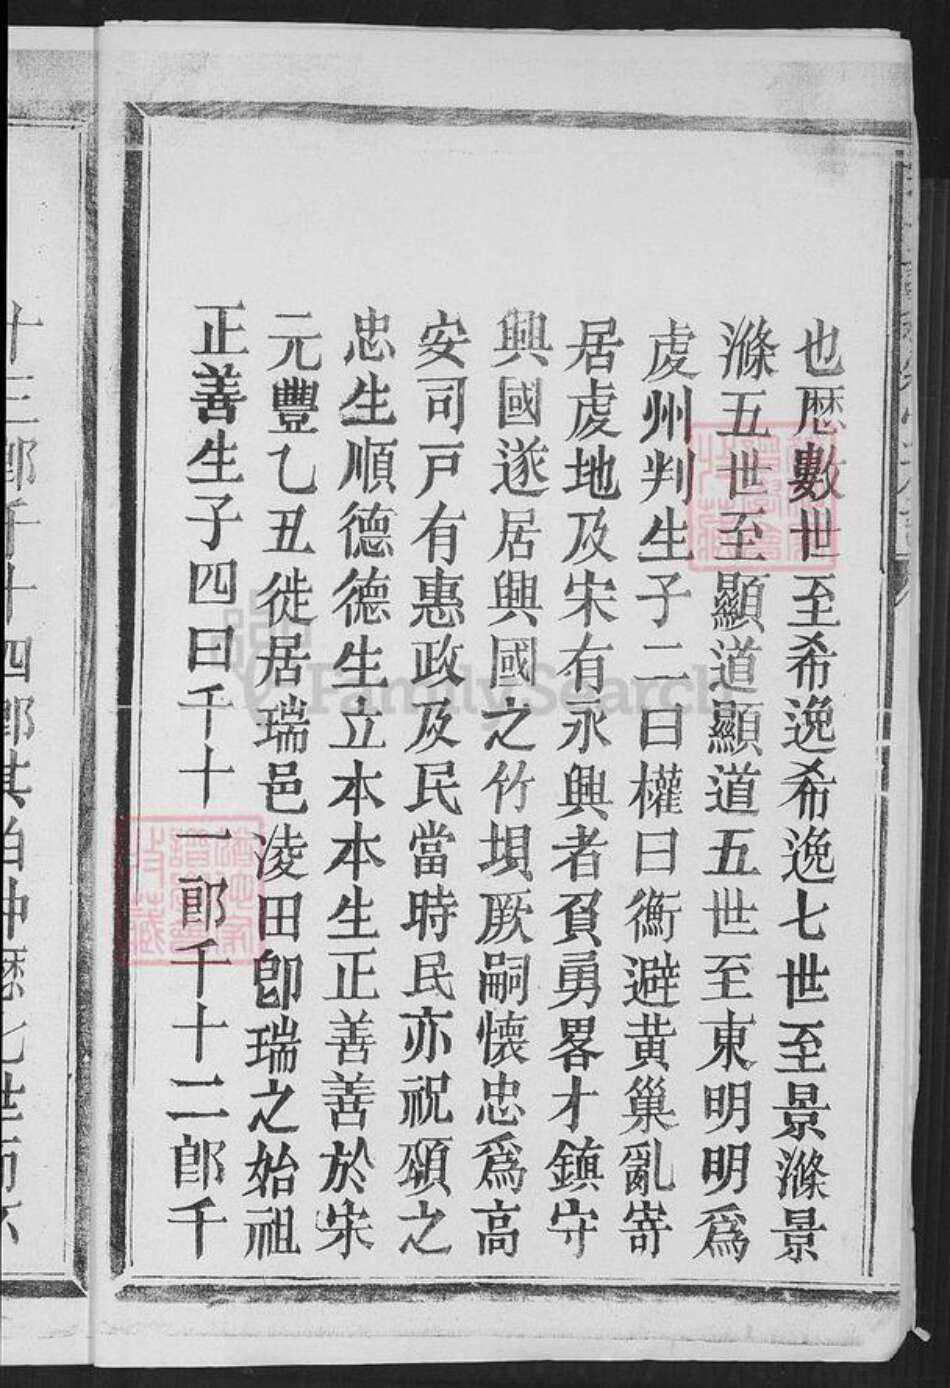 也歴數世至希逸希逸七世至景滌景
滌五世至顯道顯道五世至東明明爲
虔州判生子二曰權曰衡避黄巢亂寄
居虔地及宋有永興者負勇畧才鎮守
興國遂居興國之竹垻厥嗣懷忠爲高
安司戸有惠政及民當時民亦祝頌之
忠生順德德生立本本生正善善於宋
元豐乙丑徙居瑞邑淩田卽瑞之始祖
正善生子四曰千十一郎千十二郎千
十三郎千十四郎其伯仲歴七世而不
FamilySearch